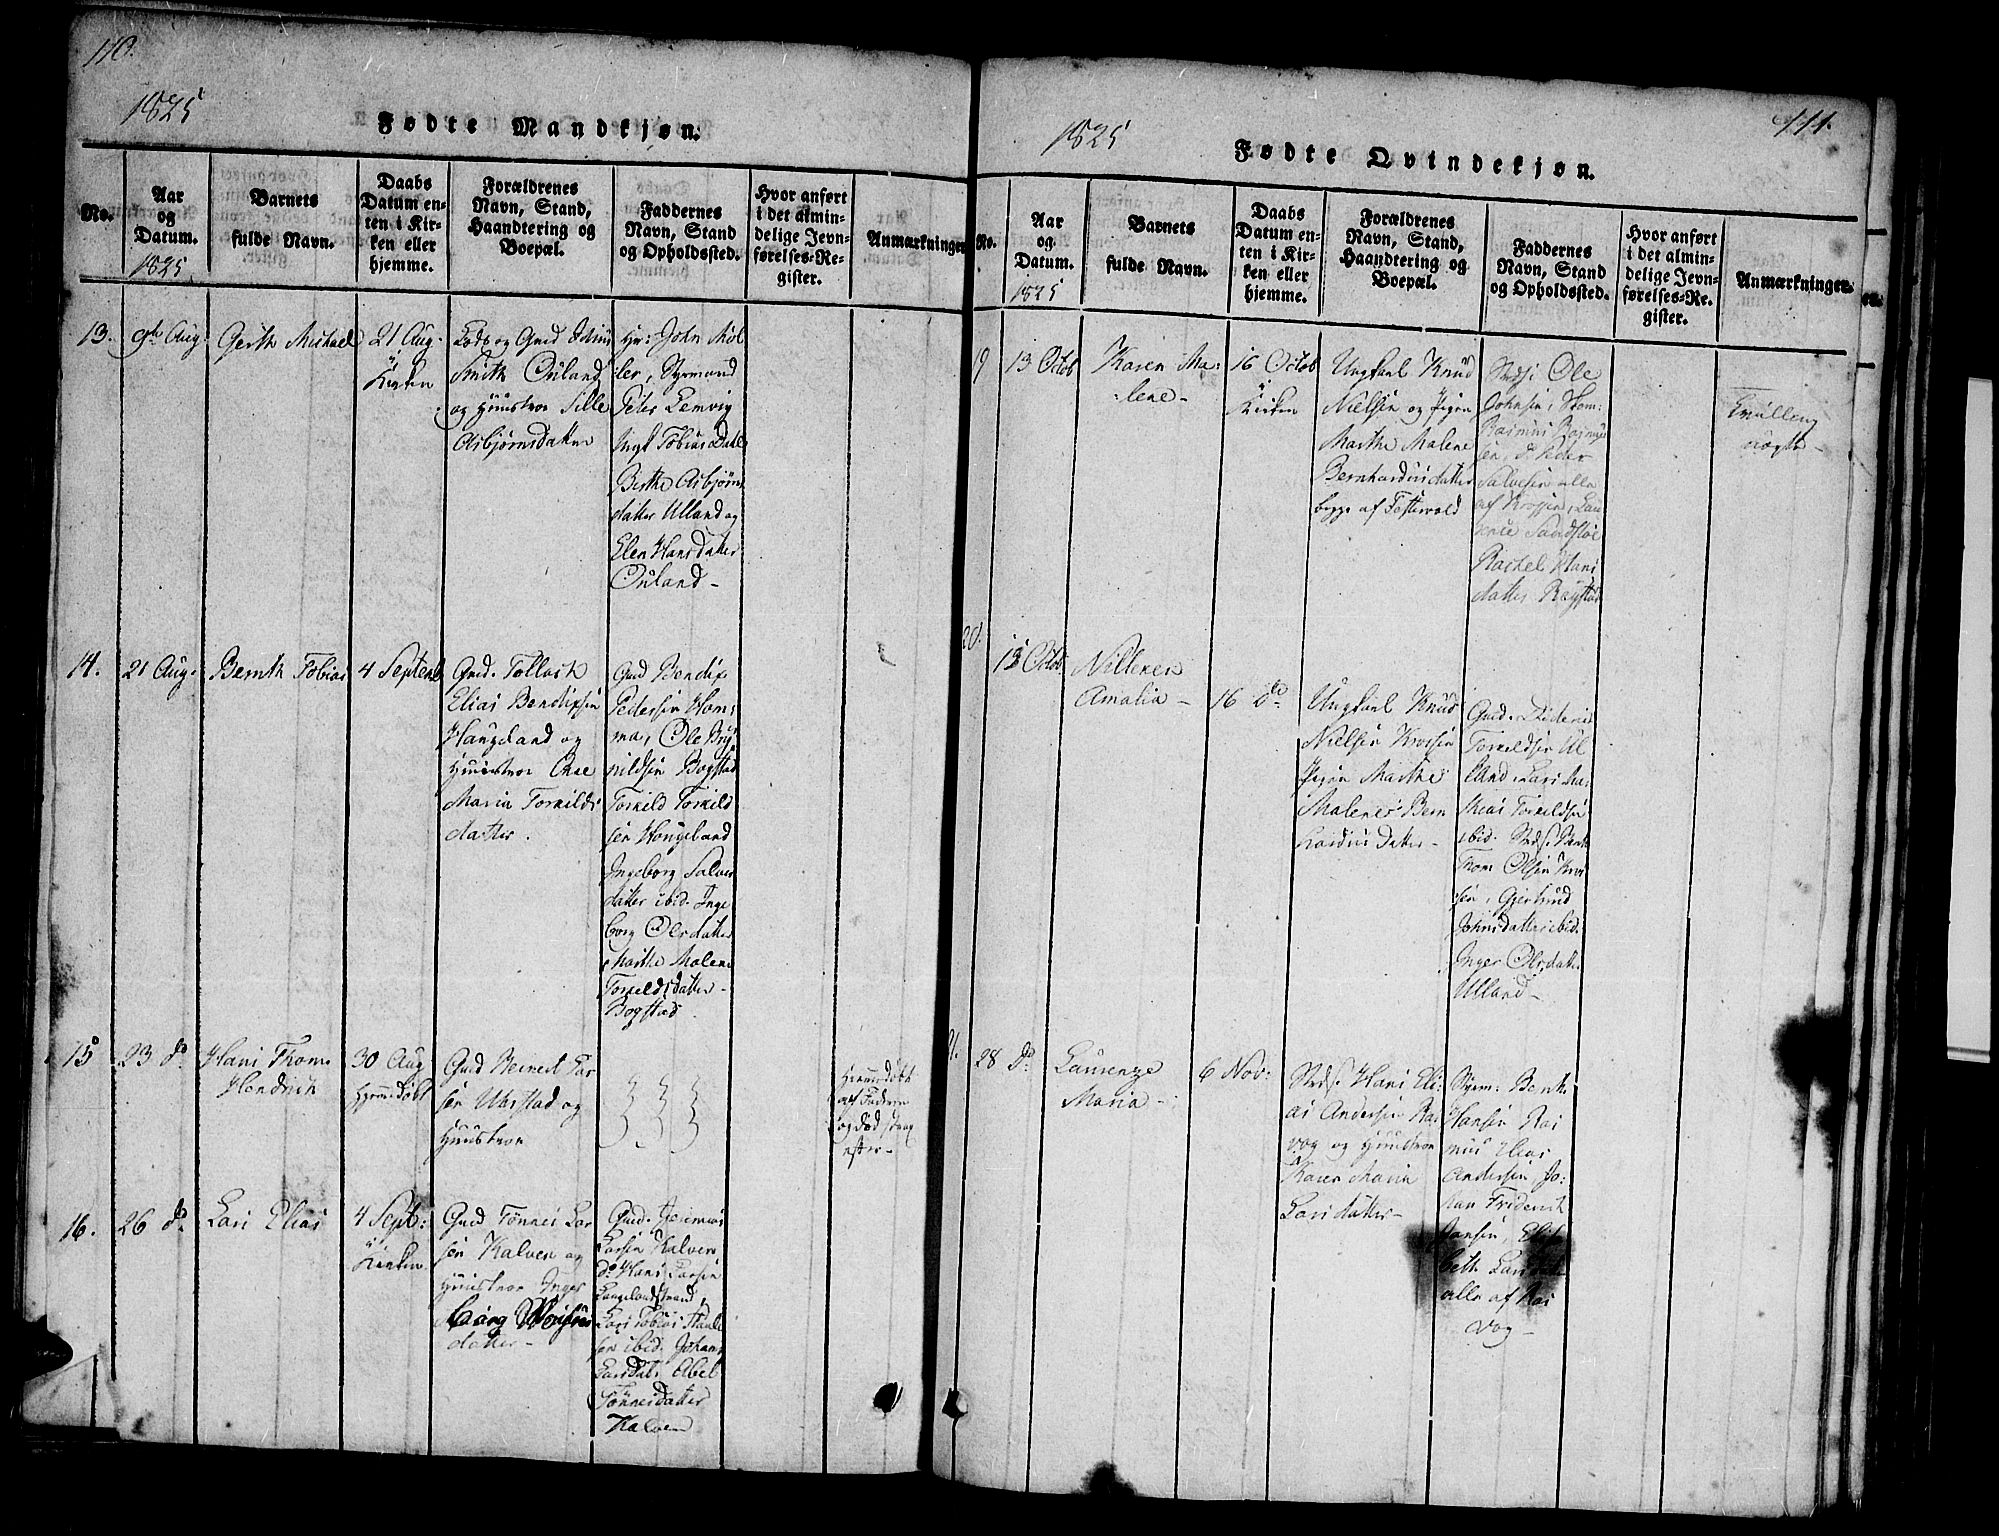 110.
1825
Fødte Mandkjøn.
No.
Aar
og
Datum.
1825
Barnets
fulde Navn.
Daabs
Datum en-
ten i Kir-
ken eller
hjemme.
Forældrenes
Navn, Stand,
Haandtering og
Boepæl.
Faddernes
Navn, Stand
og Opholdssted.
Hvor anført
i det almin-
delige Jevn-
førelses-Re-
gister.
Anmærkninger.
13.
9de Aug.
Gerth Michael
21 Aug.
i
Kirken
Lods og Gmd
Smith Ouland
og Hustroe Sille
Asbjørnsdatter
Hr: John Møl
ler, Styrmand
Peter Lemvig
Ungk Tobias Dahl
Birthe Asbjørns
datter Ulland og
Elen Hansdatter
Ouland-
14.
21 Aug.
Bernth Tobias
4 Septemb
Gmd. Tollach
Elias Bendixsen
Haugeland og
Hustroe Ane
Maria Torkilds
datter.
Gmd Bendix
Pedersen Hom-
ma, Ole Bry
nildsen Bogstad
Torkild Torkild
sen Hougeland
Ingeborg Salves
datter ibid. Inge
borg Olsdatter
Marthe Malene
Torkildsdatter-
Bogstad
15
23 do
Hans Thom-
Hendrich
30 Aug
Hjemdøbt
Gmd Reinert Lar
sen Ubostad og
Hustroe
Hiemdøbt
af Faderen
og død strax
efter-
16.
26 do
Lars Elias
4 Sept:
i
Kirken
Gmd Tønnes Lar
sen Kalven og
Hustroe Inger
datter-
Gmd. Jeremias
Larsen Kalven
do Hans Larsen
Langelandstrand,
Lars Tobias
sen ibid. Johan
Larsdal, Abel
Tønnesdatter
Kalven
111.
1825
Fødte Qvindekjøn.
No.
Aar
og
Datum.
1825
Barnets
fulde Navn.
Daabs
Datum en-
ten i Kir-
ken eller
hjemme.
Forældrenes
Navn, Stand,
Haandtering og
Boepæl.
Faddernes
Navn, Stand
og Opholdssted.
Hvor anført
i det almin-
delige Jevn-
førelses-Re-
gister.
Anmærkninger.
19
13 Octob
Karen Ma-
lene-
16 Octob
i
Kirken
Ungkarl Knud
Nielsen og Pigen
Marthe Malene
Bernhardusdatter
begge af
Strds: Ole
Johnsen, Thom:
Rasmus Rasmus
sen, do Peder
Salvesen alle
af Krossen, Lau
rence Sandsløe
Rachel Hans
datter Røgstad
Tvilling
uægte-
20.
13 Octob.
Nillexen
Amalia-
16 do
Ungkarl Knud
Nielsen Krossen
Pigen Marthe
Malenes Bern
hardus datter-
Gmd. Diderik
Torkildsen Ul
land, Lars Ma
thias Torkildsen
ibid. Strds: Bernt
Thom Olsen Kros
sen, Gjertrud
Johnsdatter ibid.
Inger Olsdatter
Ulland-
21.
28 do
Laurenze
Maria-
6 Nov:
Strds: Hans Eli-
as Andersen Ras
vog og Hustroe
Karen Maria
Larsdatter-
Styrm: Bernt
Hansen Ras
mus Elias
Andersen, Jo-
han Friderich
Hansen, Elisa
beth Larsdatter
alle af Ras
vog-